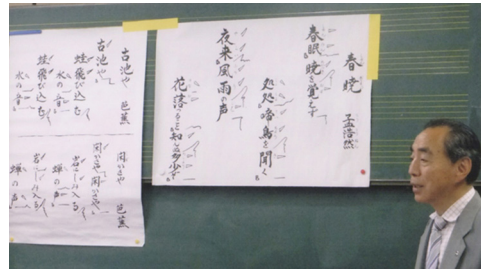 春暁 孟浩然
春眠暁を覚えず
処処啼鳥を聞く
夜来風雨の声
花落ること知る多少ぞ
古池や 芭蕉
古池や
蛙飛び込む
水の音
蛙飛び込む
水の音
閑かさや 芭蕉
閑かさや閑かさや
岩にしみ入る
蝉の声
岩にしみ入る
蝉の声